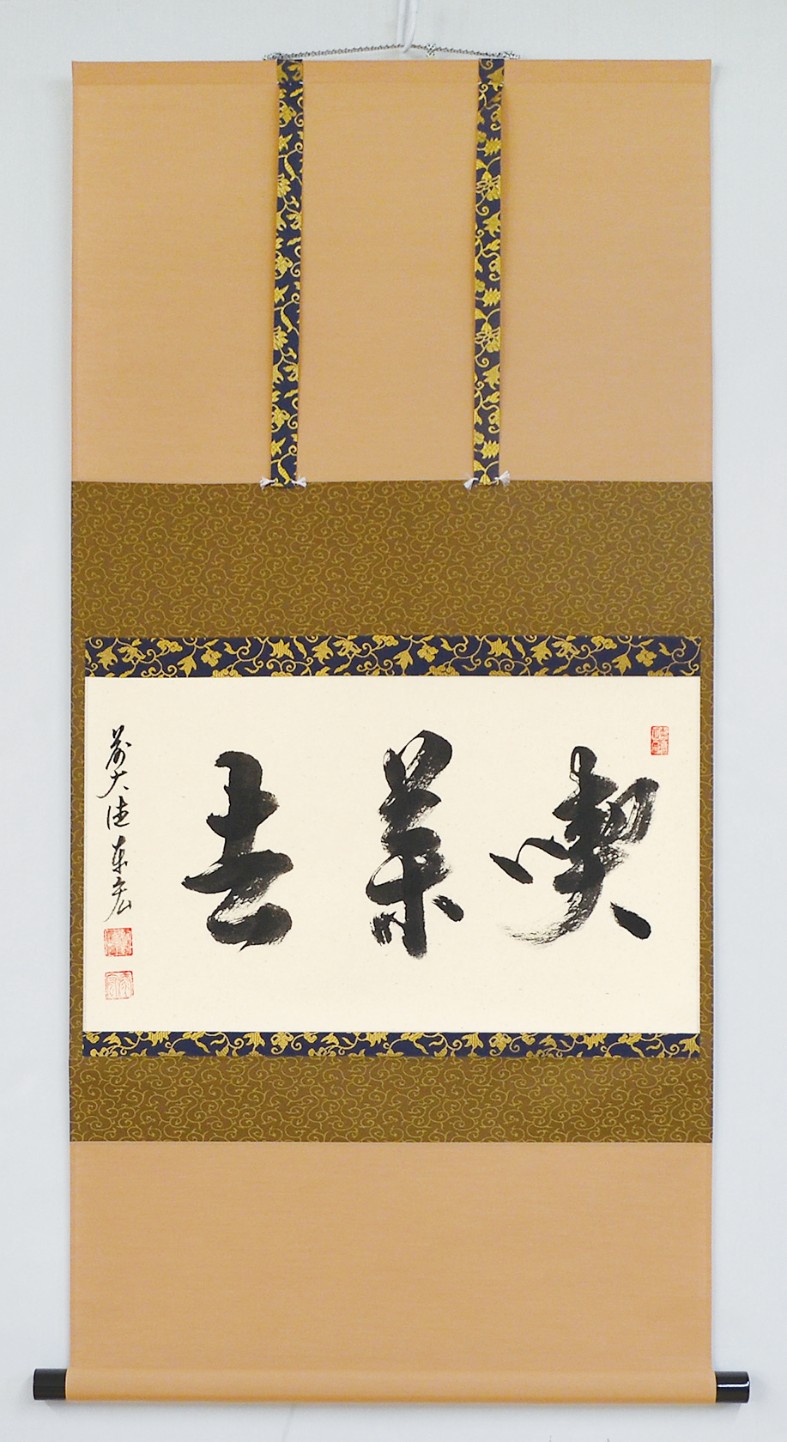 喫茶去
前大徳東宏